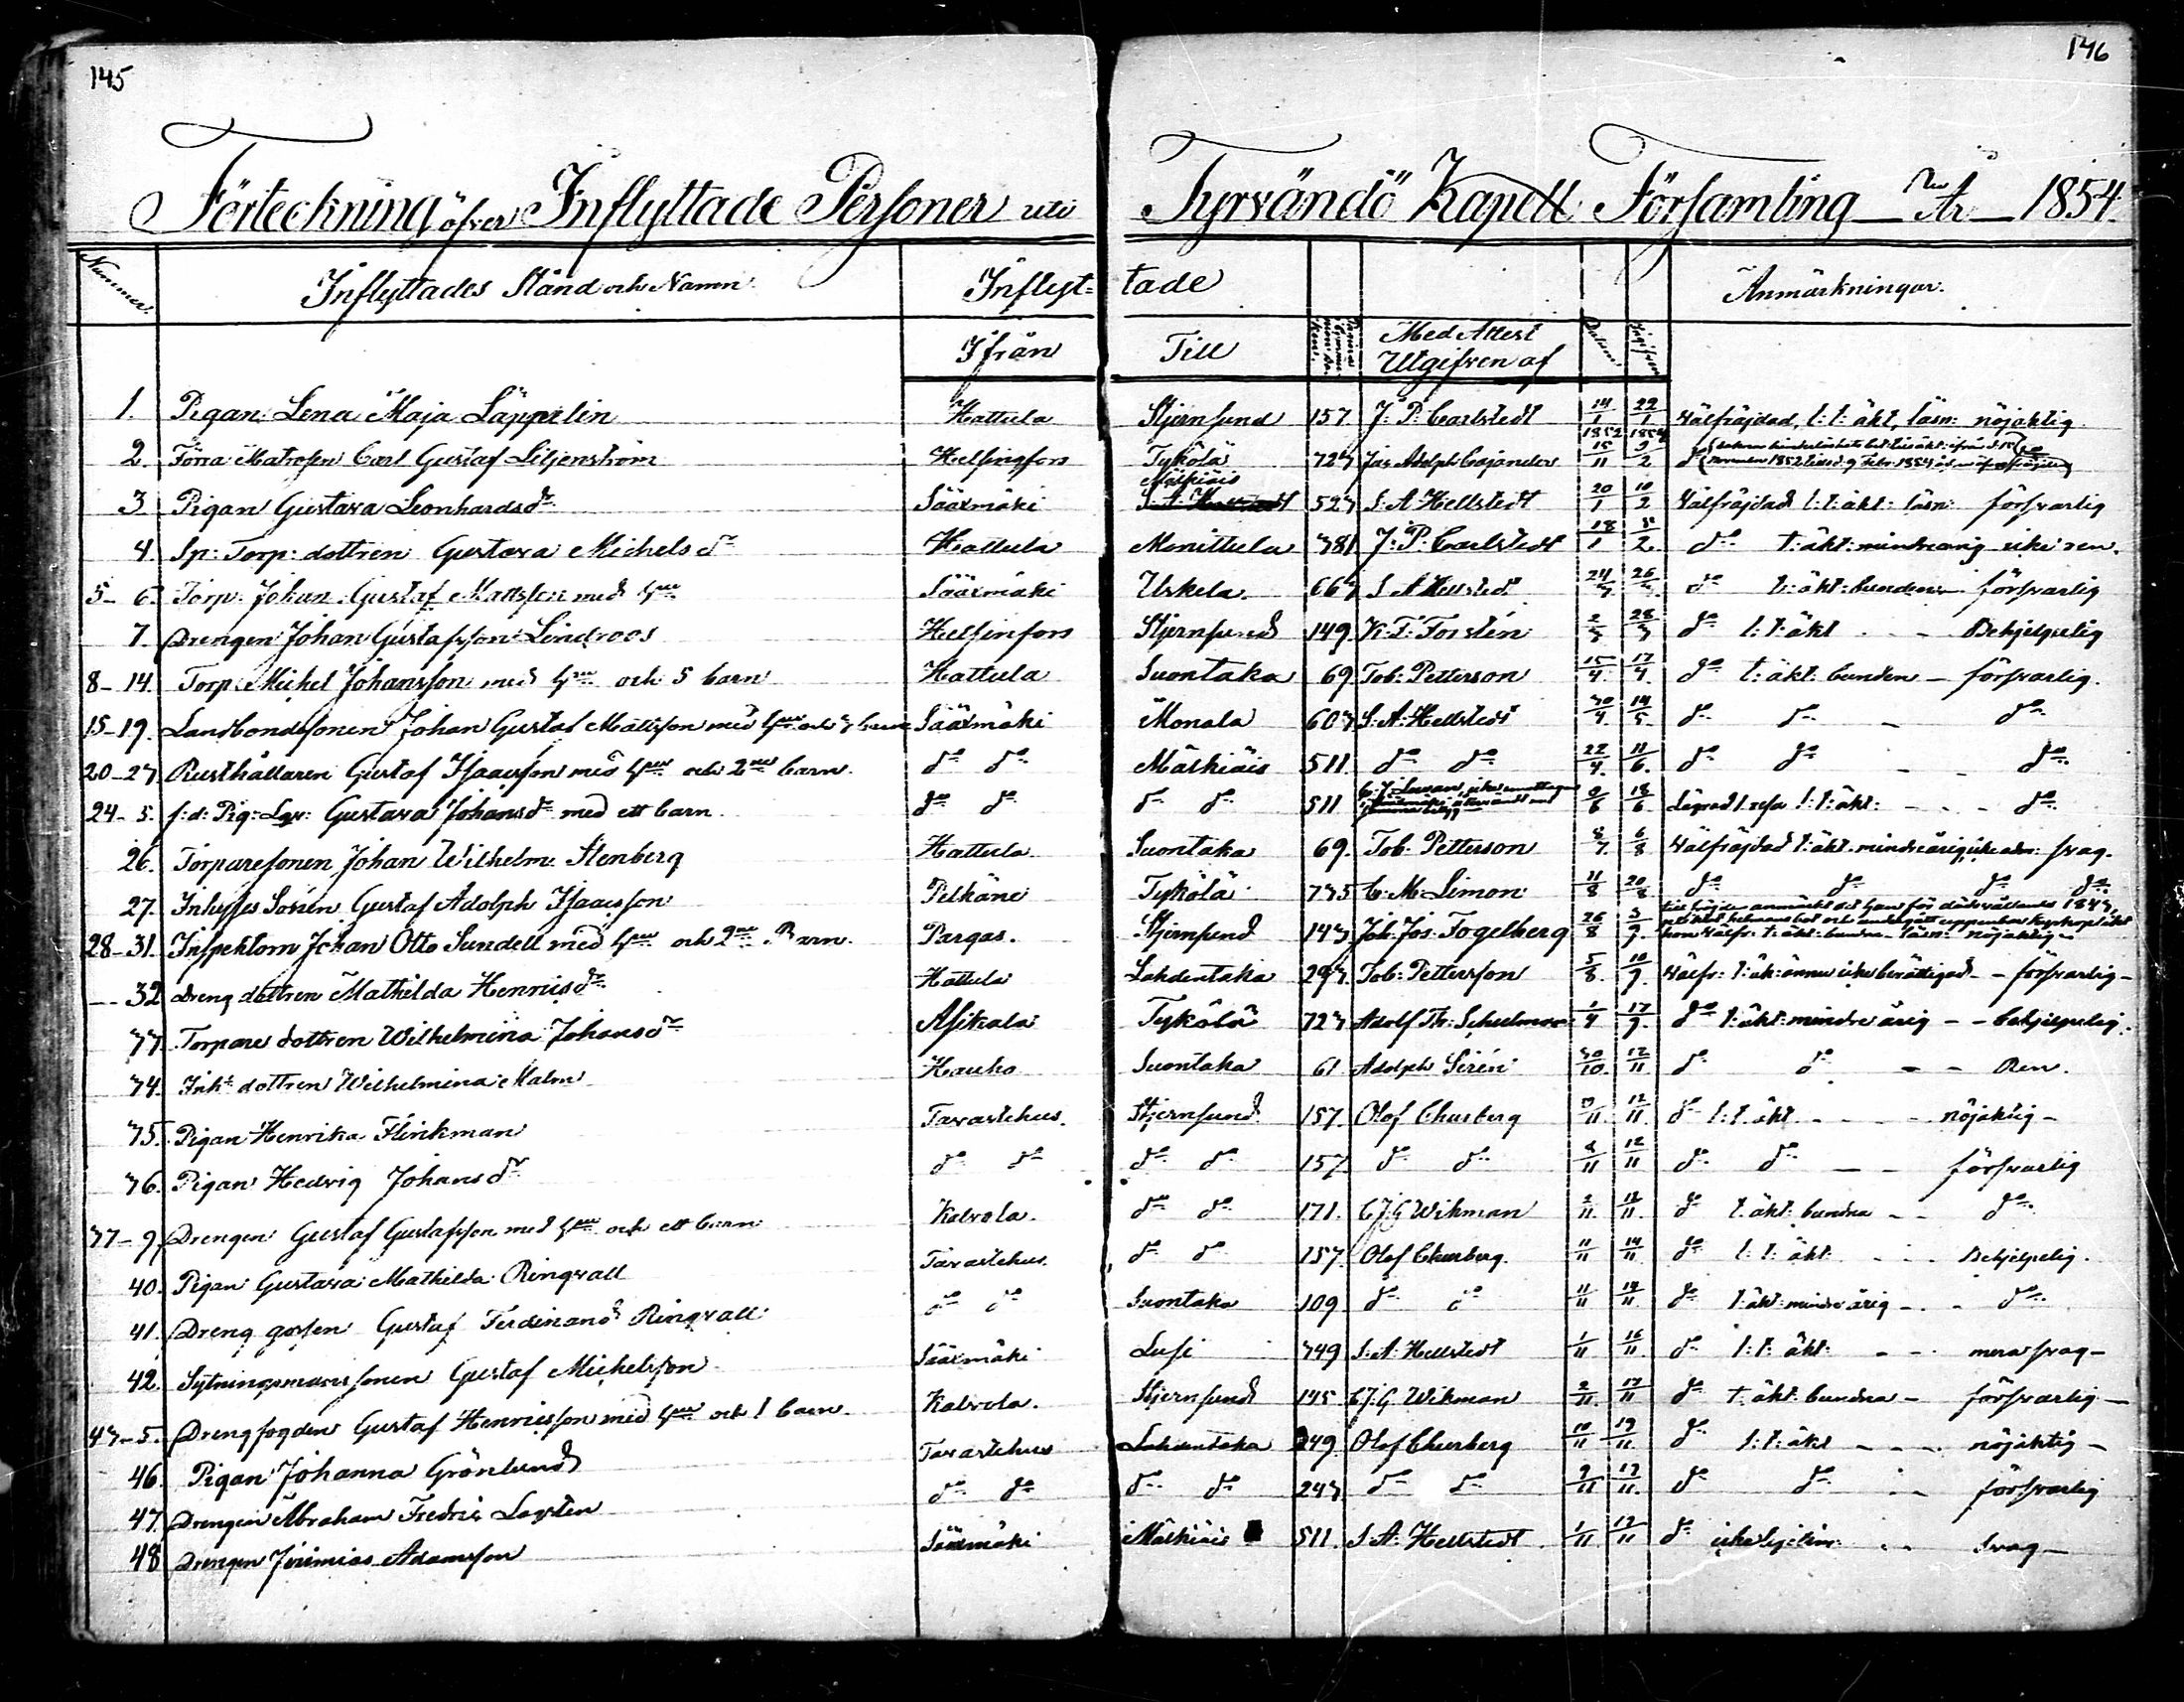 145
146
Förteckning öfver Inflyttade Personer uti Tyrvändö Kapell Församling År 1854.
Nummer. Inflyttades Stånd och Namn. Inflyt= tade Anmärkningar.
Ifrån Till Med Attest Utgifven af Datum
1. Pigan Lena Maja Läppelin Hattula Stjernsund 157. J. P. Carlstedt 14/1 22/1 Välfräjdad, l: t: äkt, läsn: nöjaktig
2. Förra Matrosen Carl Gustaf Liljenström Helsingfors Tykölä 723 Jac Adolph Cajander 1852 15/11 1854 9/2 do
3. Pigan Gustava Leonhardsdr Sääxmäki Mälkiäis 523 S. A. Hellstedt 20/1 10/2 Välfräjdad l: t: äkt: läsn: försvarlig
4. Sp: Torp: dottren Gustava Michelsdr Hattula Monittula 381 J: P: Carlstedt 18/1 5/2 do t: äkt: mindreårig icke ren.
5-6. Torp: Johan Gustaf Mattsson med hu Sääxmäki Uskela. 663 S A Hellstedt 24/3 26/3 do t: äkt: bunden försvarlig
7. Drengen Johan Gustafsson Lindroos Helsinfors Stjernsund 149 K. F. Forstén 2/3 28/3 do l: t: äkt - Behjelpelig
8-14. Torp: Michel Johansson med hu och 5 barn Hattula Suontaka 69. Tob: Petterson 15/4. 17/4 do t: äkt: bunden - försvarlig.
15-19. Landbondesonen Johan Gustaf Mattsson med hu och 3 barn Sääxmäki Monala 603 S: A: Hellstedt 30/4 14/5. do do - do
20-23 Rusthållaren Gustaf Isaacsson med hu och 2ne barn. do do Mälkiäis 511 do do 22/4. 11/6. do do - - do
24-5. f: d: Pig: Gustava Johansdr med ett barn. do do do do 511 9/6 18/6. l: t: äkt: - - - do
26. Torparesonen Johan Wilhelm Stenberg Hattula Suontaka 69. Tob: Petterson 8/7. 6/8 Välfräjdad t: äkt. mindreårig svag.
27. Inhyses Sonen Gustaf Adolph Isaacsson Pelkäne Tykölä 735 C. M. Limon 11/8 20/8 do do do do
28-31. Inspektorn Johan Otto Sundell med hu och 2ne Barn. Pargas. Stjernsund 143 Joh: Jos: Fogelberg 26/8 3/9. hon välfr. t: äkt: bunden - läsn: nöjaktig -
32 Dreng dottren Mathilda Henricsdr Hattula Lahdentaka 293. Tob: Pettersson 5/8. 10/9. Välfr: t: äkt: ännu icke berättigad - - försvarlig -
33. Torpare dottren Wilhelmina Johansdr Asikala Tykölä 723 Adolf Th: Schulman 1/4 17/9. do t: äkt: mindre årig - - behjelpelig.
34. Inhs dottren Wilhelmina Malm Hauho Suontaka 61 Adolph Sirén 30/10. 12/11 do do - - Ren.
35. Pigan Henrika Flinkman Tavastehus. Stjernsund 157. Olof Churberg 9/11. 12/11. do l: t. äkt - - - - nöjaktig -
36. Pigan Hedvig Johansdr do do do do 157. do do 8/11 12/11 do do - - försvarlig
37-9 Drengen Gustaf Gustafsson med hu och ett barn Kalvola. do do 171. C J. G Wikman 2/11. 12/11. do t. äkt. bundna - - do
40. Pigan Gustava Mathilda Ringvall Tavastehus. do do 157. Olof Churberg. 11/11 14/11 do l: t: äkt - . . Behjelpelig.
41. Dreng gossen Gustaf Ferdinand Ringvall do do Suontaka 109 do do 11/11 14/11. do t: äkt: mindre årig - . - do
42. Sytningsmans sonen Gustaf Michelsson Sääxmäki Lusi 349 S: A: Hellstedt 1/11 16/11. do l: t: äkt: - - . mera svag -
43-5. Drengfogden Gustaf Henricsson med hu och 1 barn. Kalvola. Stjernsund 145 C. J. G Wikman 2/11. 17/11 do t: äkt: bundna - försvarlig -
46. Pigan Johanna Grönlund Tavastehus Lahdentaka 249. Olof Churberg 10/11 19/11. do l: t: äkt - - . nöjaktig -
47. Drengen Abraham Fredric do do do do 243 do do 9/11 19/11. do do . . - försvarlig
48 Drengen Jeremias Adamsson Sääxmäki Mälkiäis 511. S. A: Hellstedt. 1/11 19/11 do . . - Svag -